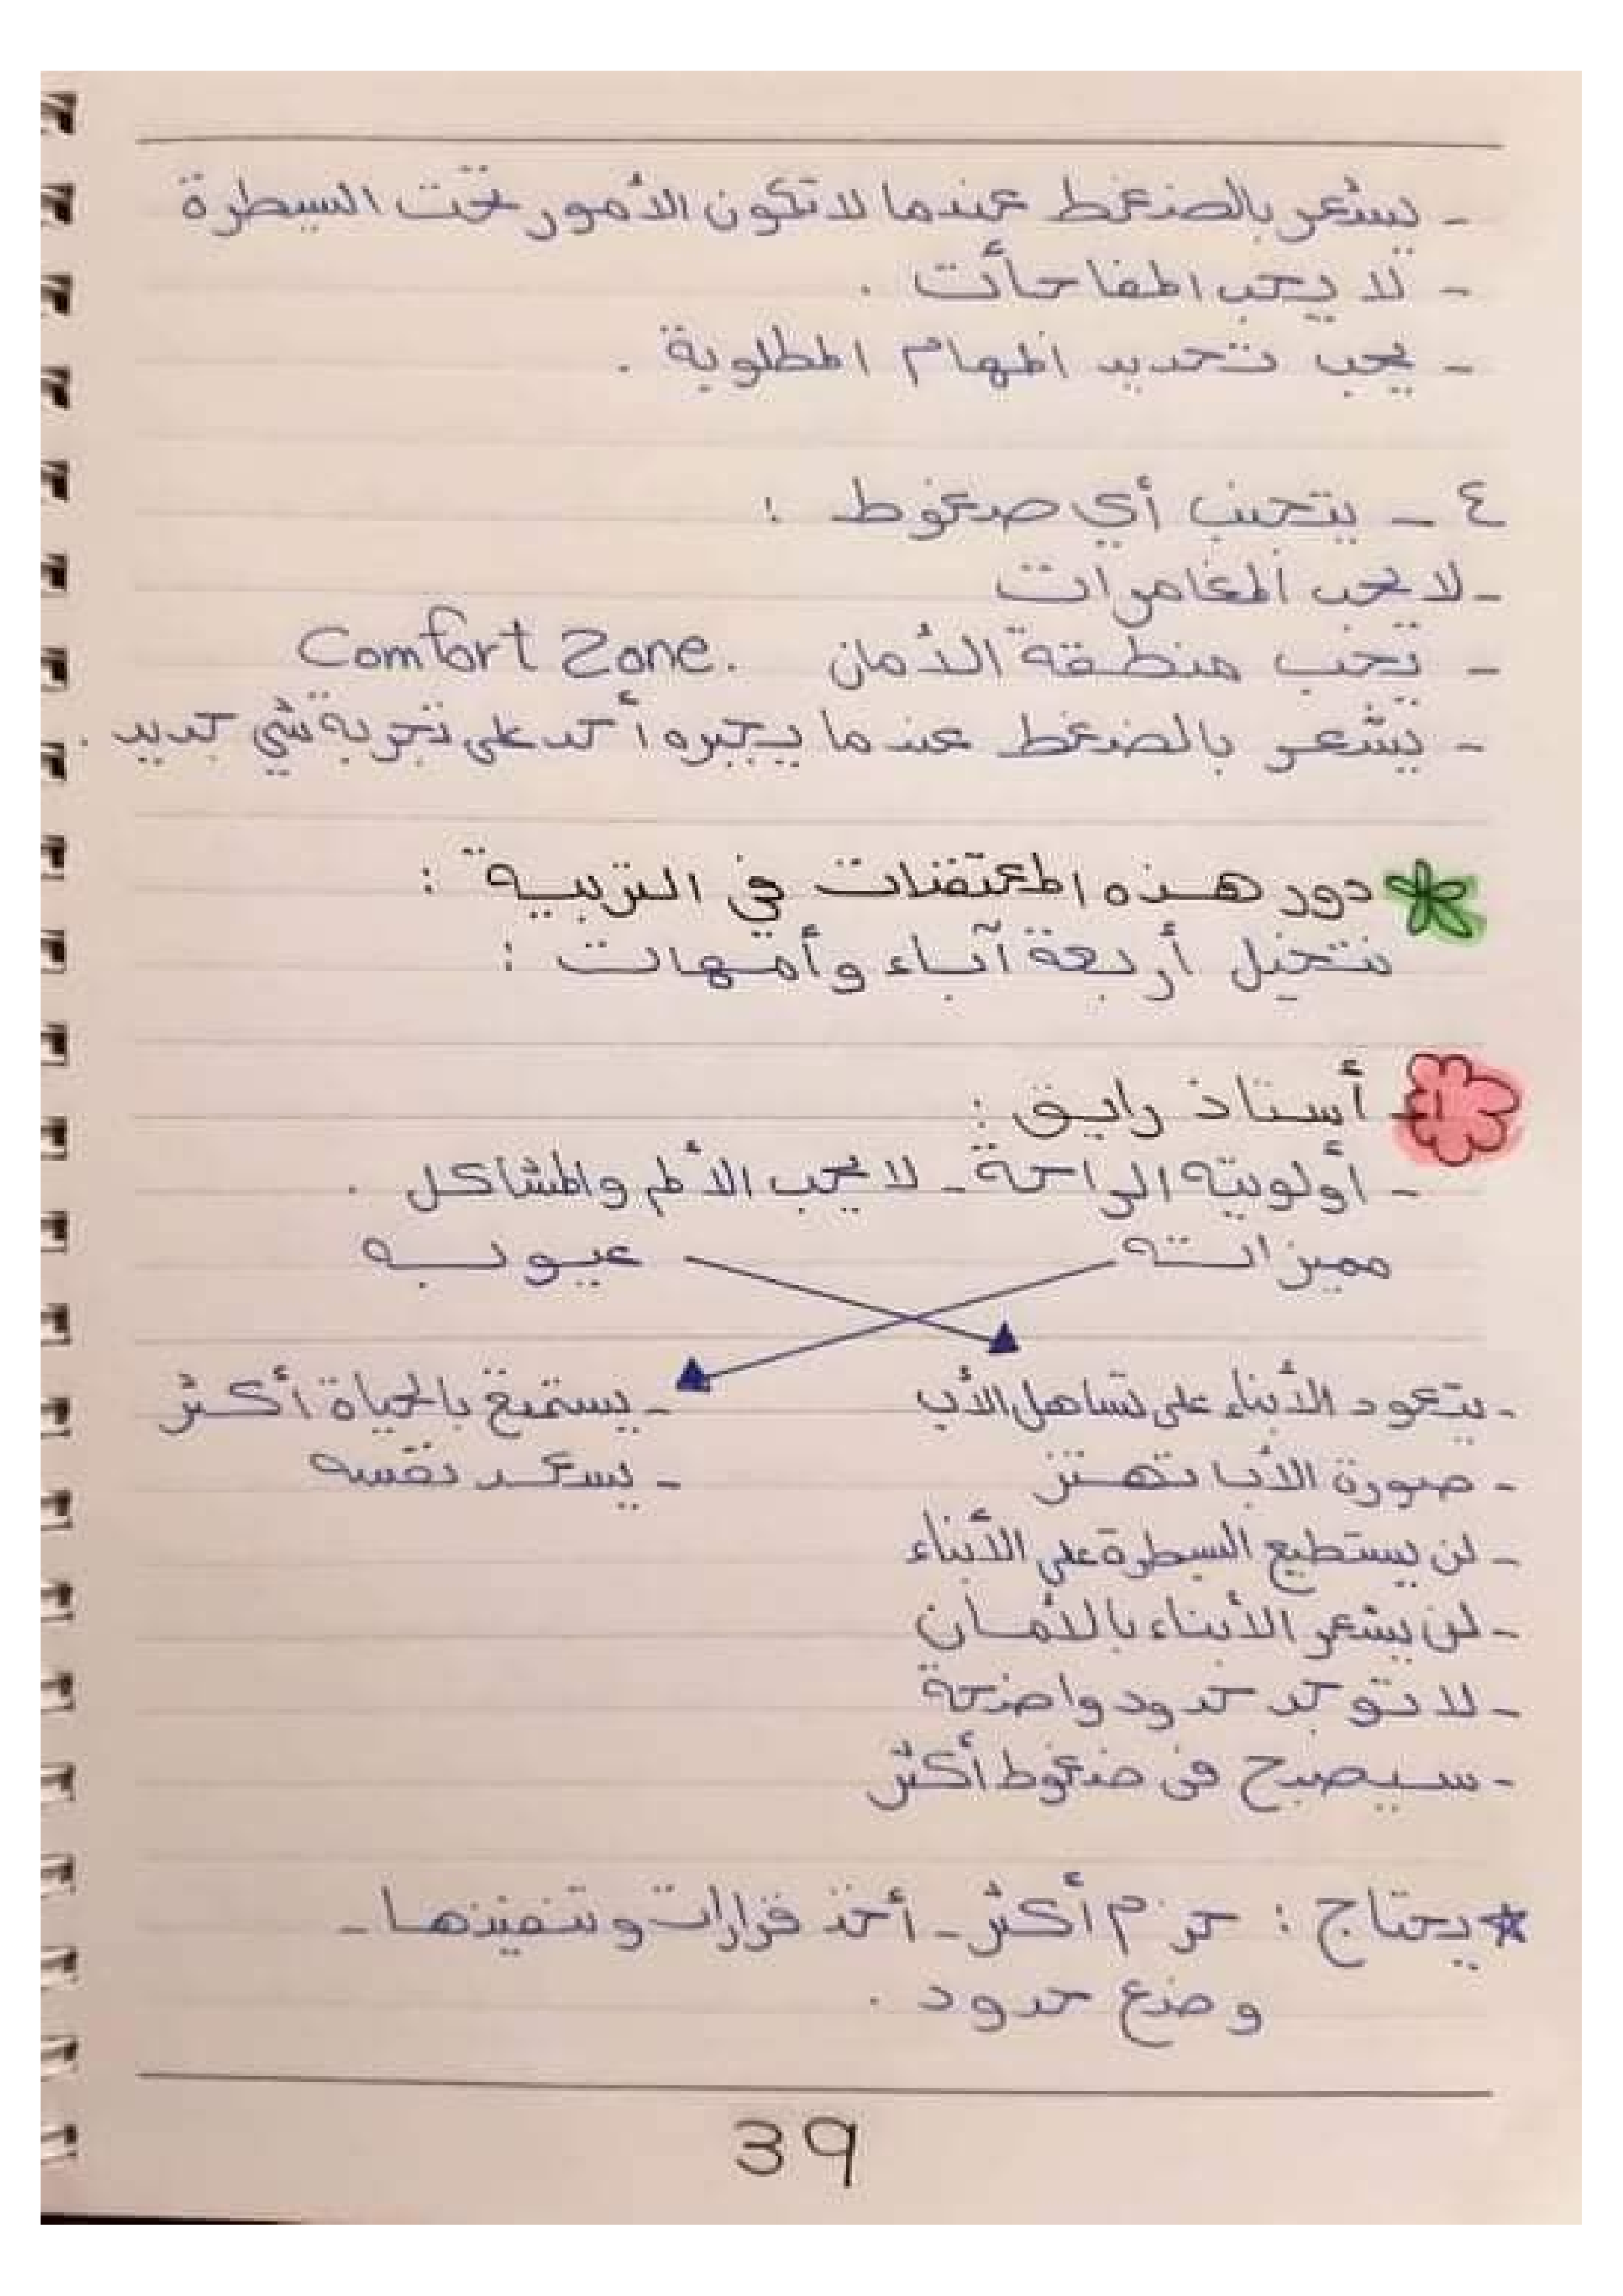 - يشعر بالضغط عندما لا تكون الأمور تحت السيطرة
- لا يحب المفاجأت .
- يحب تحديد المهام المطلوبة .
٤ - يتجنب أي ضغوط :
- لا يحب المغامرات
- تحب منطقة الأمان Comfort Zone.
- يشعر بالضغط عندما يجبره أحد على تجربة شي جديد .
دور هذه المعتقدات في التربية :
نتخيل أربعة آباء وأمهات :
1- أستاذ رايق :
- أولويته الراحة - لا يحب الألم والمشاكل .
مميزاته عيوبه
- يتعود الأبناء على تساهل الأب - يستمتع بالحياة أكثر
- صورة الأب تهتز - يسعد نفسه
- لن يستطيع السيطرة على الأبناء
- لن يشعر الأبناء بالأمان
- لا توجد حدود واضحة
- سيصبح في ضغوط أكثر
* يحتاج : حزم أكثر - أخذ قرارات وتنفيذها -
وضع حدود .
39